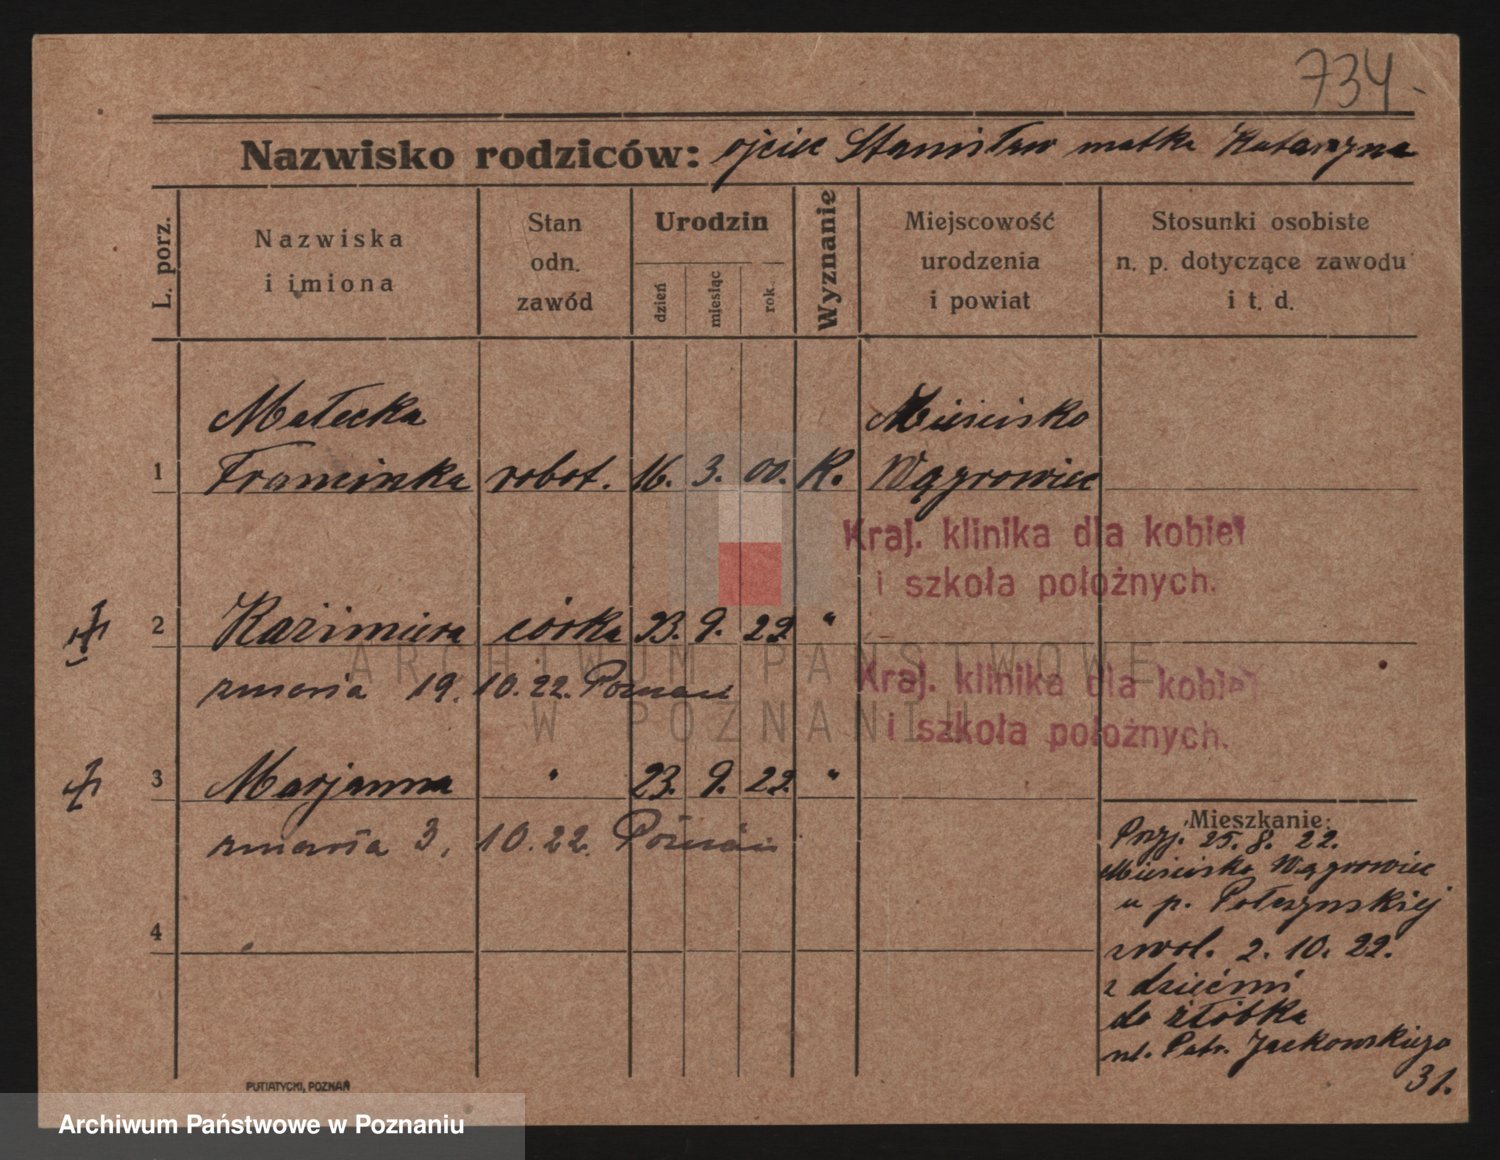 734.
Nazwisko rodziców: ojciec Stanisław matka Katarzyna
L. porz.
Nazwiska
i imiona
Stan
odn.
zawód
Urodzin
dzień
miesiąc
rok.
Wyznanie
Miejscowość
urodzenia
i powiat
Stosunki osobiste
n. p. dotyczące zawodu
i t. d.
Małecka Mieścisko
1 Franciszka robot. 16. 3. 00. R. Wągrowiec
Kraj. klinika dla kobiet
i szkoła położnych.
2 Kaźimiera córka 23. 9. 22. "
zmarła 19. 10. 22. Poznań
Kraj. klinika dla kobiet
i szkoła położnych.
3 Marjanna " 23. 9. 22. "
zmarła 3. 10. 22. Poznań
4
Mieszkanie:
Przyj. 25. 8. 22.
Mieścisko Wągrowiec
u p. Połczynskiej
zwol. 2. 10. 22.
z dziećmi
do żłóbka
ul. Patr. Jackowskiego
31.
PUTIATYCKI, POZNAŃ
ARCHIWUM PAŃSTWOWE
W POZNANIU
Archiwum Państwowe w Poznaniu